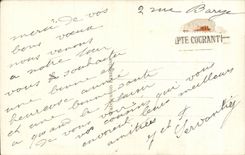 2 rue Barye
PTE COURANT
merci de vos
bons voeux
nous venons
a notre tour
vous souhaiter
une bonne et
heureuse année
et une santé
a quand le plaisir
de vous voir
vos cousins qui vous
envoient leurs meilleurs
amitiés
Y et F
Servantie